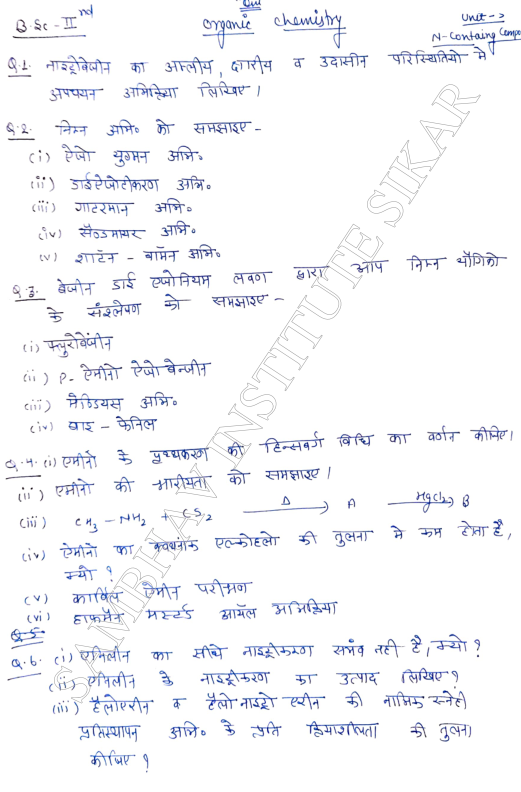 B.Sc - IInd
Organic Chemistry
Unit ->
N-Containg Compo
Q.1. नाइट्रोबेंजीन का अम्लीय, क्षारीय व उदासीन परिस्थितियों में
अपचयन अभिक्रिया लिखिए।
Q.2. निम्न अभि० को समझाइए -
(i) ऐजो युग्मन अभि०
(ii) डाईऐजोटीकरण अभि०
(iii) गाटरमान अभि०
(iv) सैण्डमायर अभि०
(v) शाटन - बॉमन अभि०
Q.3. बेंजीन डाई एजोनियम लवण द्वारा आप निम्न यौगिको
के संश्लेषण को समझाइए -
(i) फ्लुरोबेंजीन
(ii) p- ऐमीनो ऐजो बेन्जीन
(iii) अभि०
(iv) बाइ - फेनिल
Q.4. (i) एमीनो के पृथ्थकरण की हिन्सबर्ग विधि का वर्णन कीजिए।
(ii) एमीनो की क्षारीयता को समझाइए।
(iii) CH3 - NH2 + CS2 —Δ→ A —HgCl2→ B
(iv) ऐमीनो का क्वथनांक एल्कोहलो की तुलना मे कम होता है,
क्यो ?
(v) कार्बिल ऐमीन परीक्षण
(vi) हाफमेन मस्टर्ड आयॅल अभिक्रिया
Q.5.
Q.6. (i) एनिलीन का सीधे नाइट्रीकरण सभंव नही है, क्यो ?
(ii) एनिलीन के नाइट्रीकरण का उत्पाद लिखिए ?
(iii) हैलोएरीन व हैलो नाइट्रो एरीन की नाभिक स्नेही
प्रतिस्थापन अभि० के प्रति क्रियाशीलता की तुलना
कीजिए ?
SAMBHAV INSTITUTE SIKAR